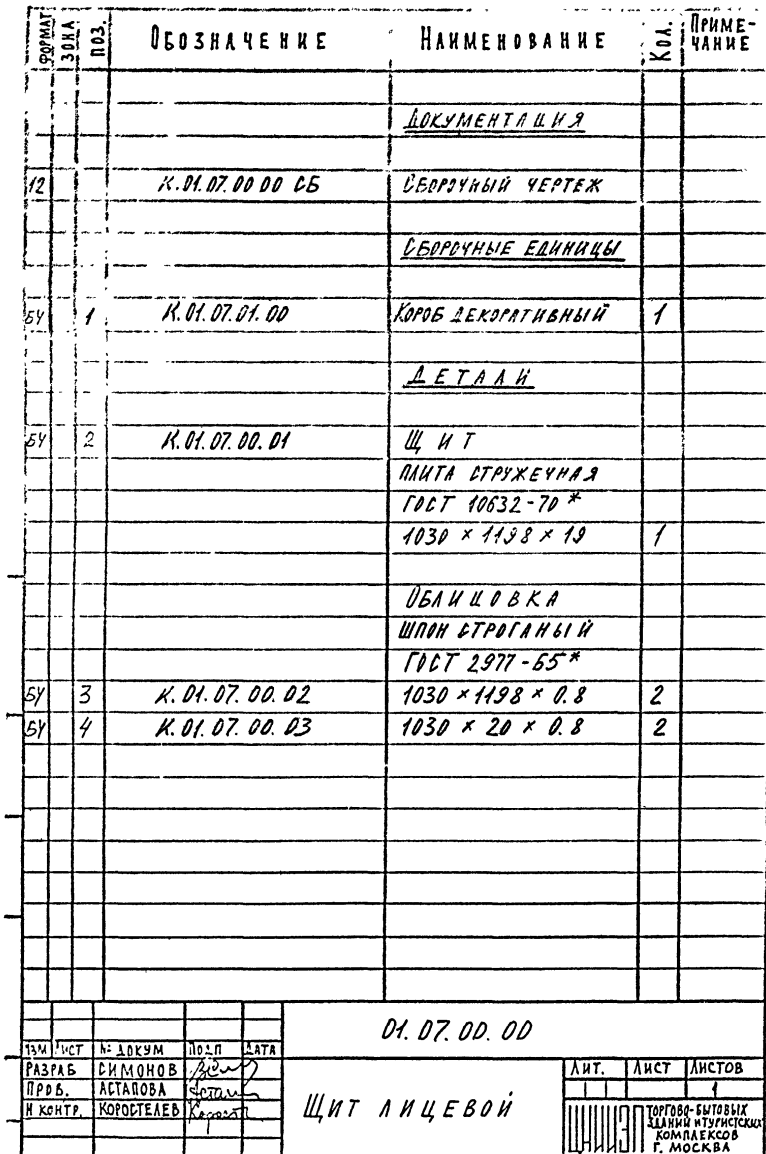 ФОРМАТ ЗОНА ПОЗ. ОБОЗНАЧЕНИЕ НАИМЕНОВАНИЕ КОЛ. ПРИМЕ-
ЧАНИЕ
ДОКУМЕНТАЦИЯ
12 К.01.07.00 00 СБ СБОРОЧНЫЙ ЧЕРТЕЖ
СБОРОЧНЫЕ ЕДИНИЦЫ
БЧ 1 К.01.07.01.00 КОРОБ ДЕКОРАТИВНЫЙ 1
ДЕТАЛИ
БЧ 2 К.01.07.00.01 ЩИТ
ПЛИТА СТРУЖЕЧНАЯ
ГОСТ 10632-70*
1030 × 1198 × 19 1
ОБЛИЦОВКА
ШПОН СТРОГАНЫЙ
ГОСТ 2977-65*
БЧ 3 К.01.07.00.02 1030 × 1198 × 0.8 2
БЧ 4 К.01.07.00.03 1030 × 20 × 0.8 2
01.07.00.00
ИЗМ ЛИСТ № ДОКУМ ПОДП ДАТА
РАЗРАБ СИМОНОВ
ПРОВ. АСТАПОВА
Н КОНТР. КОРОСТЕЛЕВ
ЩИТ ЛИЦЕВОЙ
ЛИТ. ЛИСТ ЛИСТОВ
1
ЦНИИЭП ТОРГОВО-БЫТОВЫХ
ЗДАНИЙ И ТУРИСТСКИХ
КОМПЛЕКСОВ
Г. МОСКВА